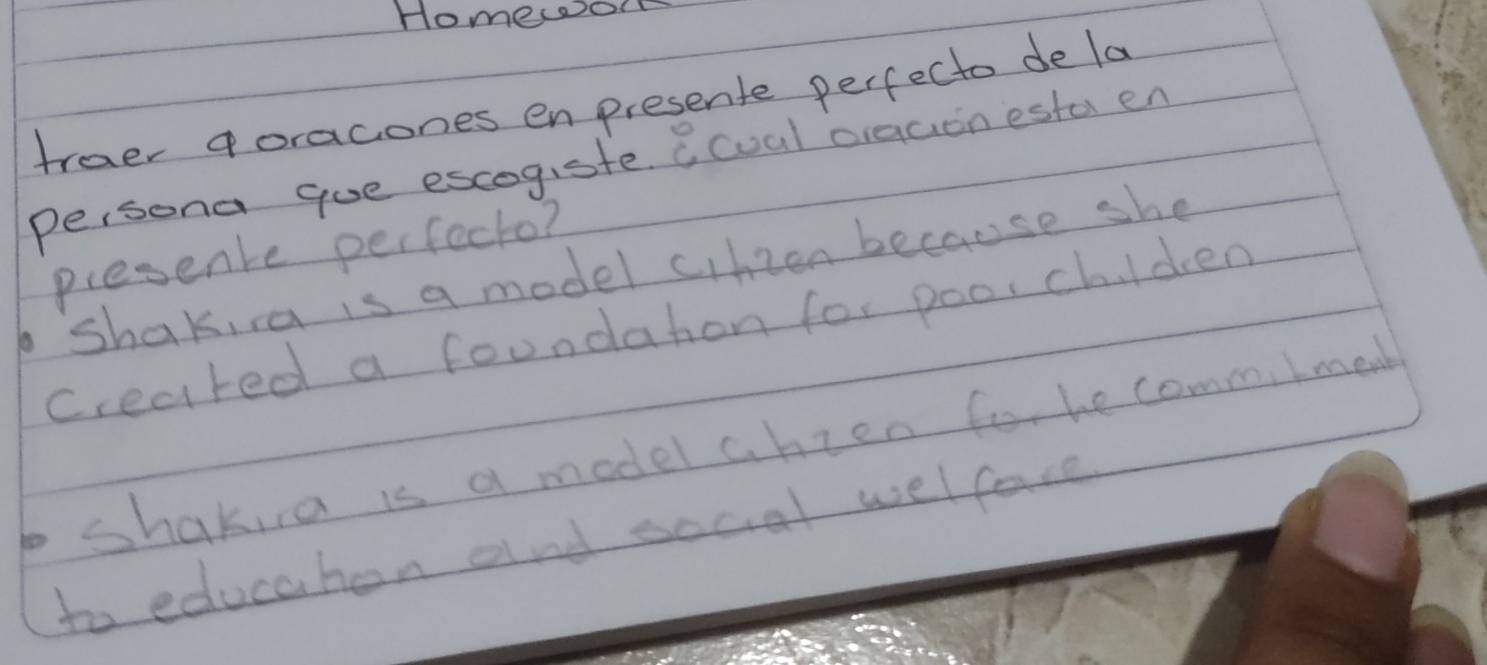 Homework
traer 4 oraciones en presente perfecto de la
persona que escogiste. ¿cual oracion esta en
presente perfecto?
• Shakira is a model citizen because she
created a foundation for poor children
• Shakira is a model citizen for he commitment
to education and social welface